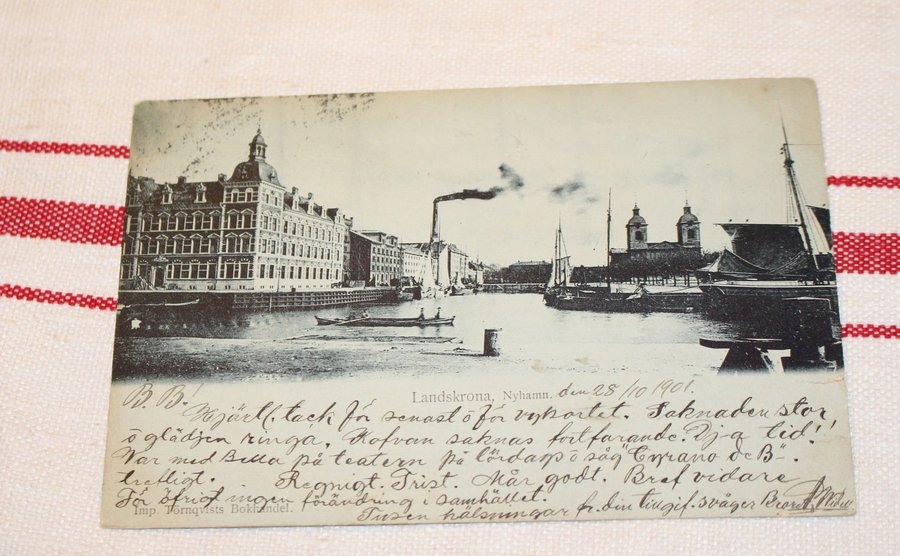 Landskrona, Nyhamn. den 28/10 1901.
B. B.!
Hjärtl. tack för senast o för vykortet. Saknaden stor,
o glädjen ringa. Kofvan saknas fortfarande. tid!
Var med Bella på teatern på lördags o såg "Cyrano de B".
trefligt. Regnigt. Trist. Mår godt. Bref vidare
För öfrigt ingen förändring i samhället.
Imp. Törnqvists Bokhandel.
Tusen hälsningar fr. din svåger